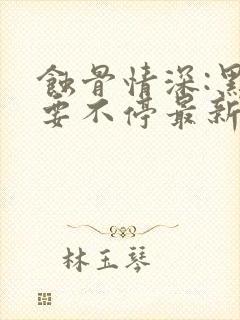 蚀骨情深:黑
要不停最新
林玉琴